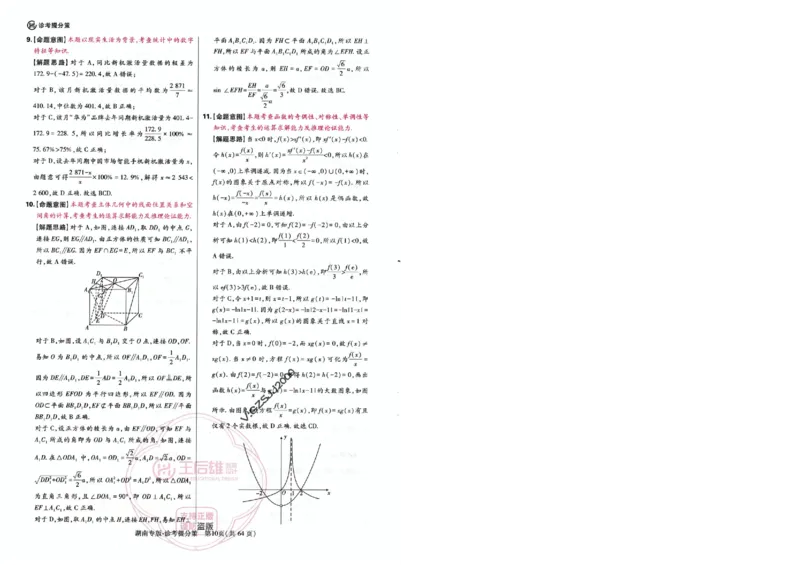 诊考提分策
9.【命题意图】本题以现实生活为背景,考查统计中的数字
特征等知识.
【解题思路】对于 A,同比新机激活量数据的极差为
172.9-(-47.5)=220.4,故 A 错误;
对于 B,该月新机激活量数据的平均数为 2 871/7 =
410.14,中位数为401.4,故 B 正确;
对于 C,该月“华为”品牌去年同期新机激活量为401.4-
172.9=228.5,所以同比增长率为 172.9/228.5 ×100%≈
75.67%>75%,故 C 正确;
对于 D,设去年同期中国市场智能手机新机激活量为 x,
由题意可得 2 871-x/x ×100%=12.9%,解得 x≈2 543<
2 600,故 D 正确.故选 BCD.
10.【命题意图】本题考查立体几何中的线面位置关系和空
间角的计算,考查考生的运算求解能力及推理论证能力.
【解题思路】对于 A,如图,连接 AD₁,取 DD₁ 的中点 G,
连接 EG,则 EG∥AD₁.由正方体的性质可知 BC₁∥AD₁,
所以 BC₁∥EG.因为 EF∩EG=E,所以 EF 与 BC₁ 不平
行,故 A 错误.
D₁ C₁
H O
A₁ B₁
D C
A B
对于 B,如图,设 A₁C₁ 与 B₁D₁ 交于 O 点,连接 OD,OF.
易知 O 为 B₁D₁ 的中点,所以 OF∥A₁D₁,OF=1/2 A₁D₁.
因为 DE∥A₁D₁,DE=1/2 AD=1/2 A₁D₁,所以 OF⫽DE,所
以四边形 EFOD 为平行四边形,所以 EF∥OD.因为
OD⊂平面 BB₁D₁D,EF⊄平面 BB₁D₁D,所以 EF∥平面
BB₁D₁D,故 B 正确.
对于 C,设正方体的棱长为 a,由 EF∥OD,可知 EF 与
A₁C₁ 所成的角即为 OD 与 A₁C₁ 所成的角.如图,连接
A₁D.在△ODA₁ 中,OA₁=OD₁=√2/2 a,A₁D=√2a,OD=
√(DD₁²+OD₁²)=√6/2 a,所以 OA₁²+OD²=A₁D²,所以△ODA₁
为直角三角形,且∠DOA₁=90°,即 OD⊥A₁C₁,所以
EF⊥A₁C₁,故 C 正确.
对于 D,如图,取 A₁D₁ 的中点 H,连接 EH,FH,易知 EH⊥
平面 A₁B₁C₁D₁.因为 FH⊂平面 A₁B₁C₁D₁,所以 EH⊥
FH,所以 EF 与平面 A₁B₁C₁D₁ 所成的角为∠EFH.设正
方体的棱长为 a,则 EH=a,EF=OD=√6/2 a,所以
sin∠EFH=EH/EF=a/(√6/2 a)=√6/3,故 D 错误.故选 BC.
11.【命题意图】本题考查函数的奇偶性、对称性、单调性等
知识,考查考生的运算求解能力及推理论证能力.
【解题思路】当 x<0 时,f(x)>xf′(x),即 xf′(x)-f(x)<0.
令 h(x)=f(x)/x,则 h′(x)=xf′(x)-f(x)/x²<0,所以 h(x)在
(-∞,0)上单调递减.因为当 x∈(-∞,0)∪(0,+∞)时,
f(x)的图象关于原点对称,所以 f(-x)=-f(x).所以
h(-x)=f(-x)/-x=f(x)/x=h(x),所以 h(x)是偶函数,故
h(x)在(0,+∞)上单调递增.
对于 A,由 f(-2)=0,可知 f(2)=-f(-2)=0,由以上分
析可知 h(1)<h(2),即 f(1)/1<f(2)/2=0,所以 f(1)<0,故
A 错误.
对于 B,由以上分析可知 h(3)>h(e),即 f(3)/3>f(e)/e,所
以 ef(3)>3f(e),故 B 错误.
对于 C,令 x+1=t,则 x=t-1,所以 g(t)=-ln|t-1|,即
g(x)=-ln|x-1|.因为 g(2-x)=-ln|2-x-1|=-ln|1-x|=
-ln|x-1|=g(x),所以 g(x)的图象关于直线 x=1 对
称,故 C 正确.
对于 D,当 x=0 时,f(0)=-2,而 xg(x)=0,故 f(x)≠
xg(x).当 x≠0 时,方程 f(x)=xg(x)可化为 f(x)/x=
g(x).由 f(2)=f(-2)=0,得 h(2)=h(-2)=0,画出
函数 h(x)=f(x)/x 与 g(x)=-ln|x-1|的大致图象,如图
所示.由图象知方程 f(x)/x=g(x),即 f(x)=xg(x)有且
仅有2个实数根,故 D 正确.故选 CD.
y
-2 O 1 2 x
王后雄
支持正版
盗版
湖南专版·诊考提分策 第10页(共 64 页)